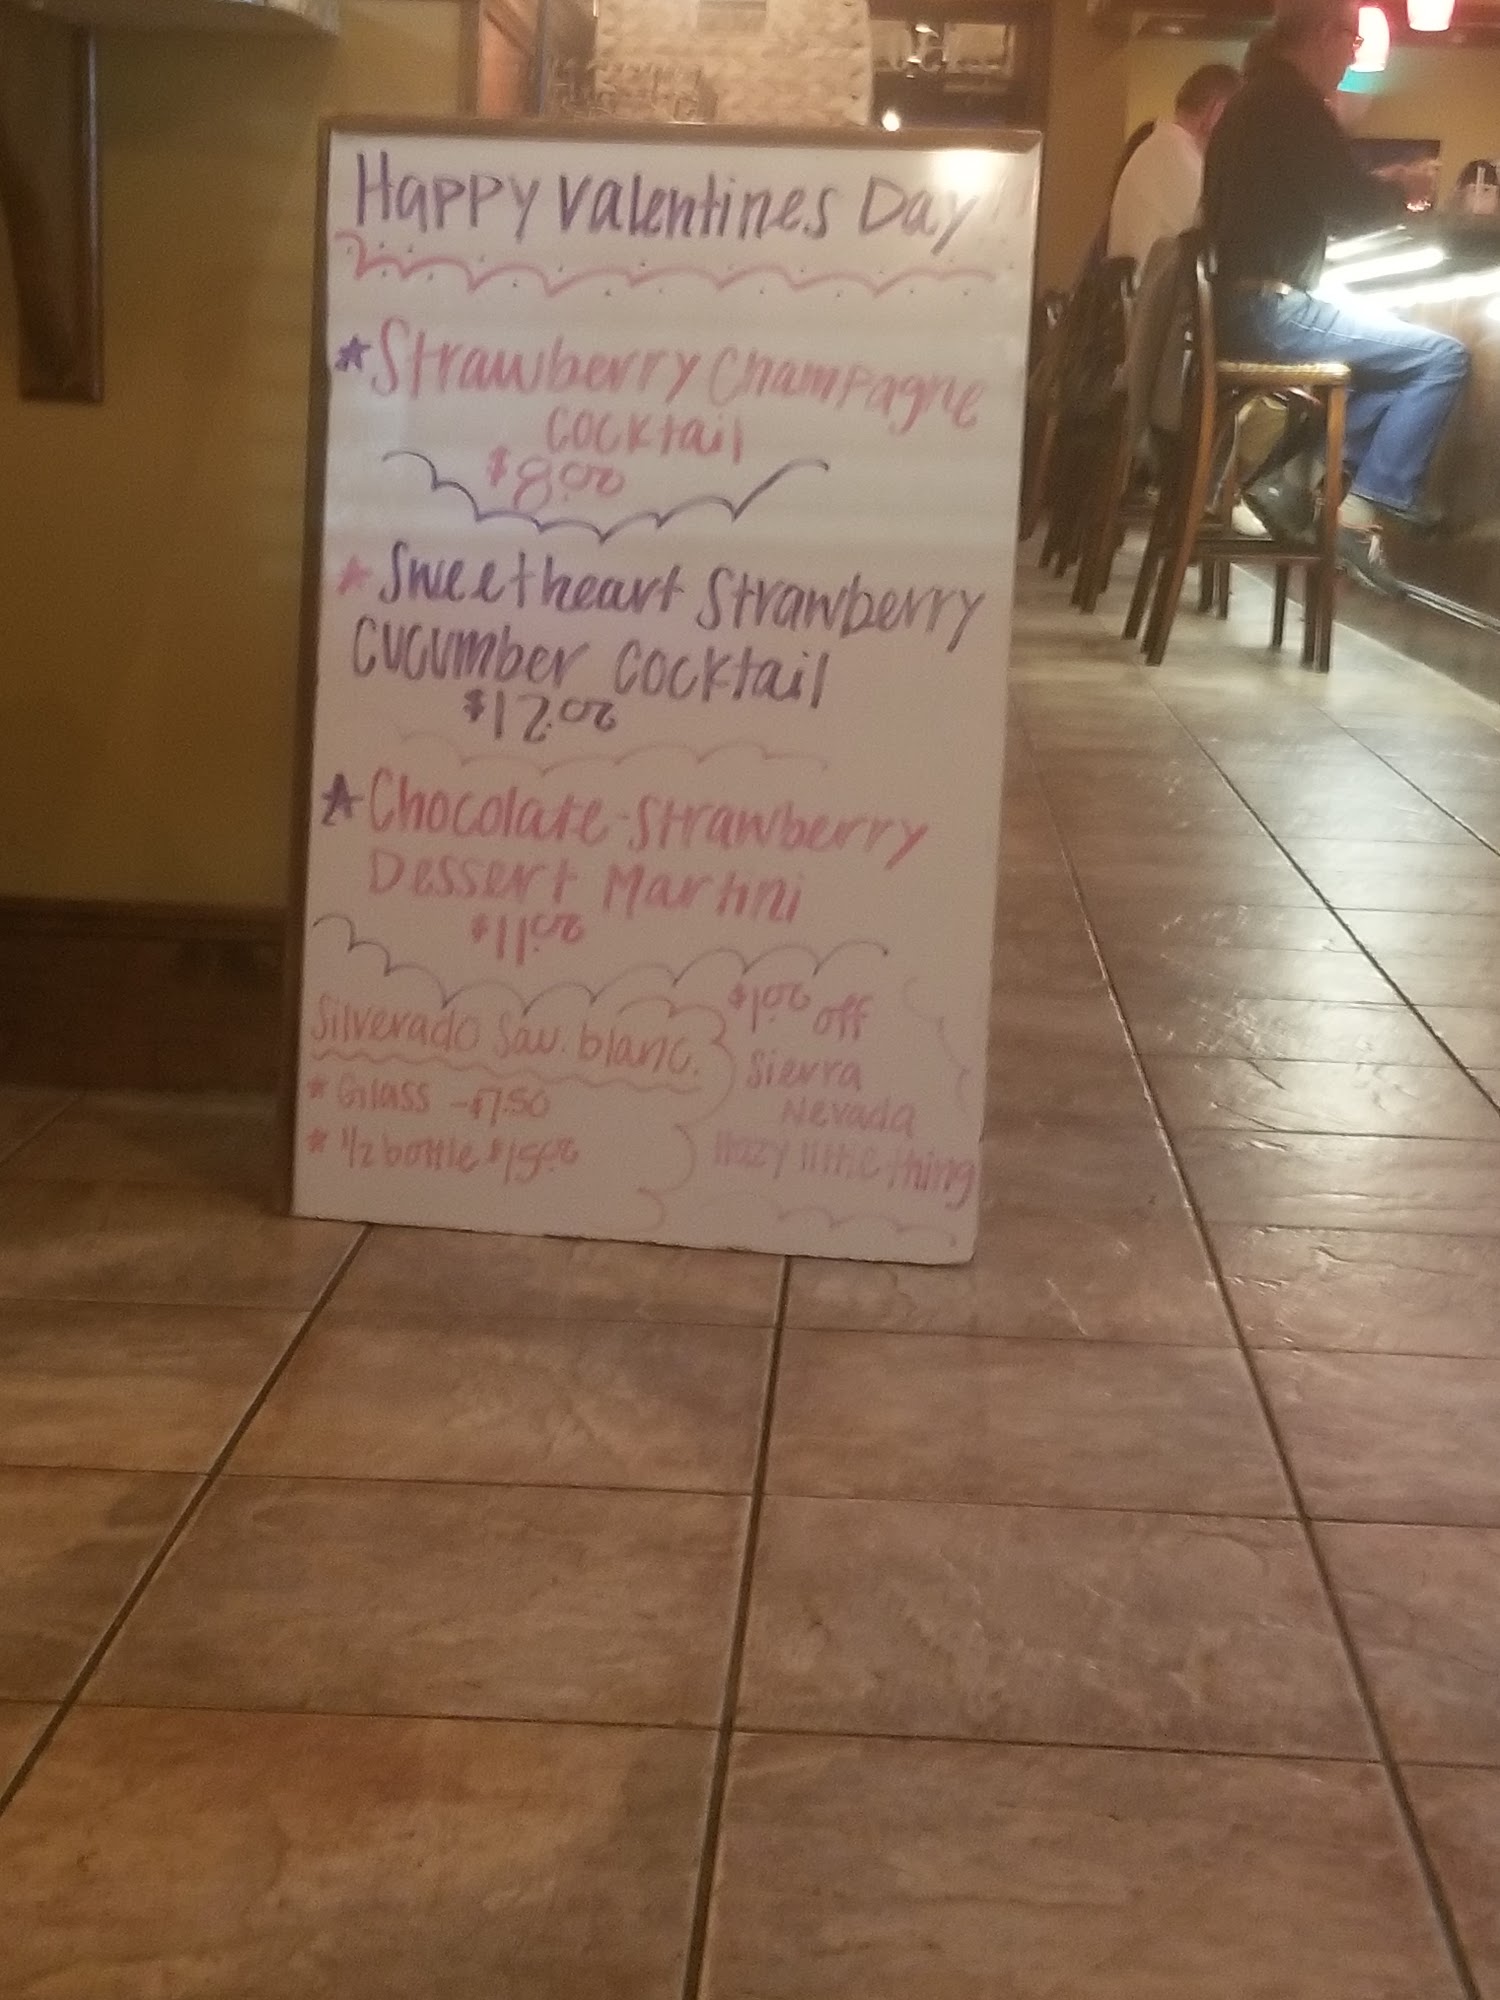 Happy Valentines Day!
Strawberry Champagne
Cocktail
$8.00
Sweetheart Strawberry
Cucumber Cocktail
$12.00
Chocolate-Strawberry
Dessert Martini
$11.00
Silverado Sav. blanc.
Glass - $7.50
1/2 bottle $15.00
$1.00 off
Sierra
Nevada
Hazy little thing